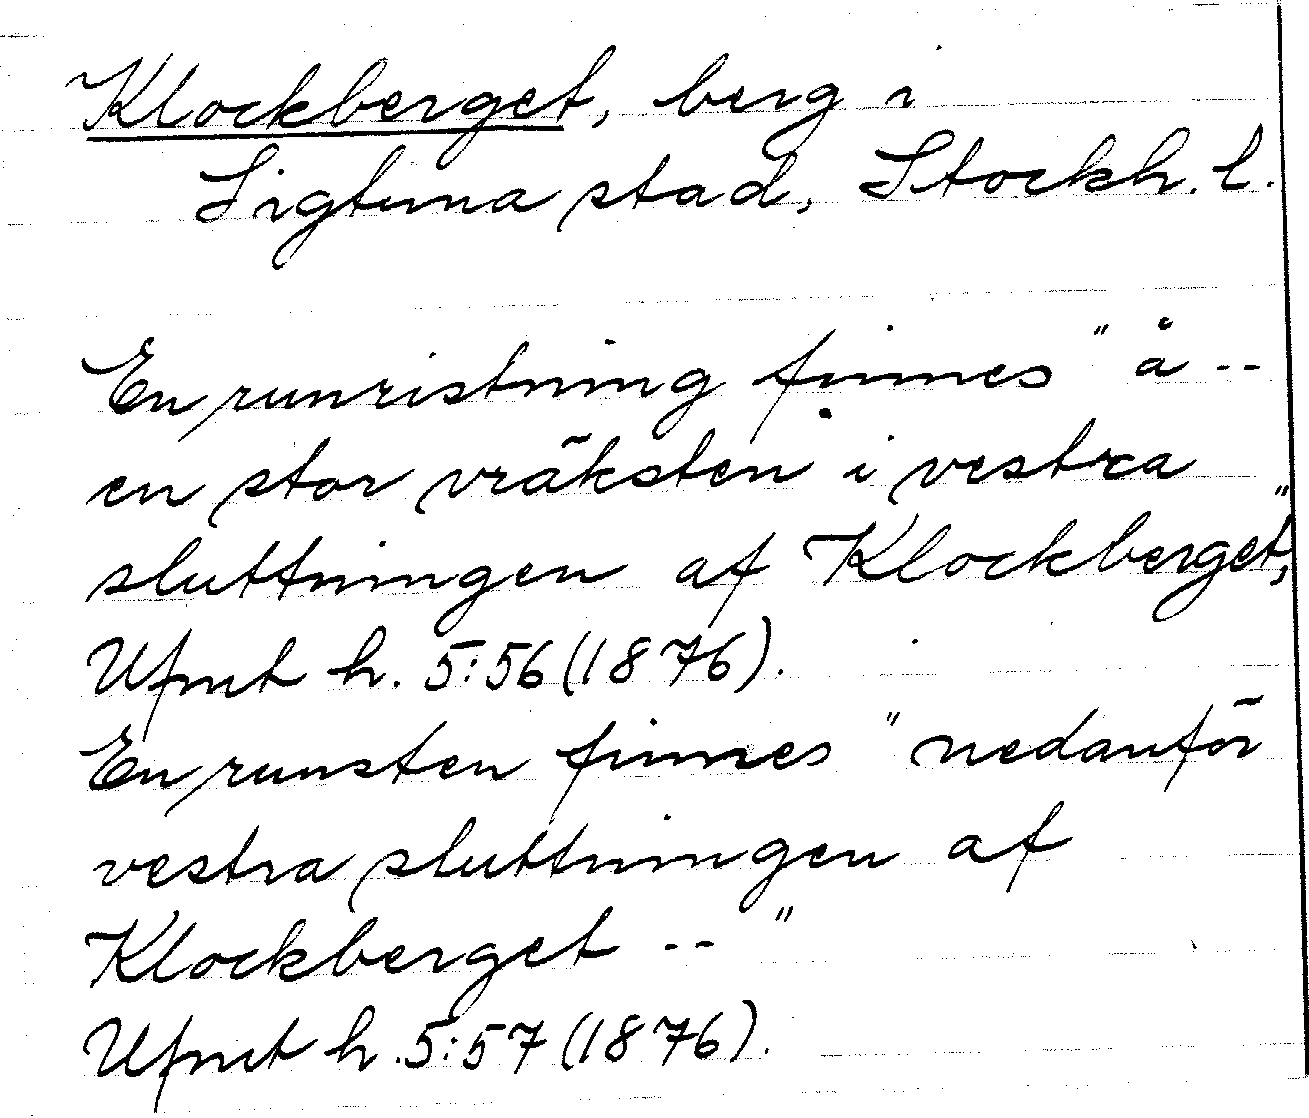 Klockberget, berg i
Sigtuna stad, Stockh. l.
En runristning finnes "å --
en stor vräksten i vestra
sluttningen af Klockberget",
Ufmt h. 5:56 (1876).
En runsten finnes "nedanför
vestra sluttningen af
Klockberget -- "
Ufmt h. 5:57 (1876).